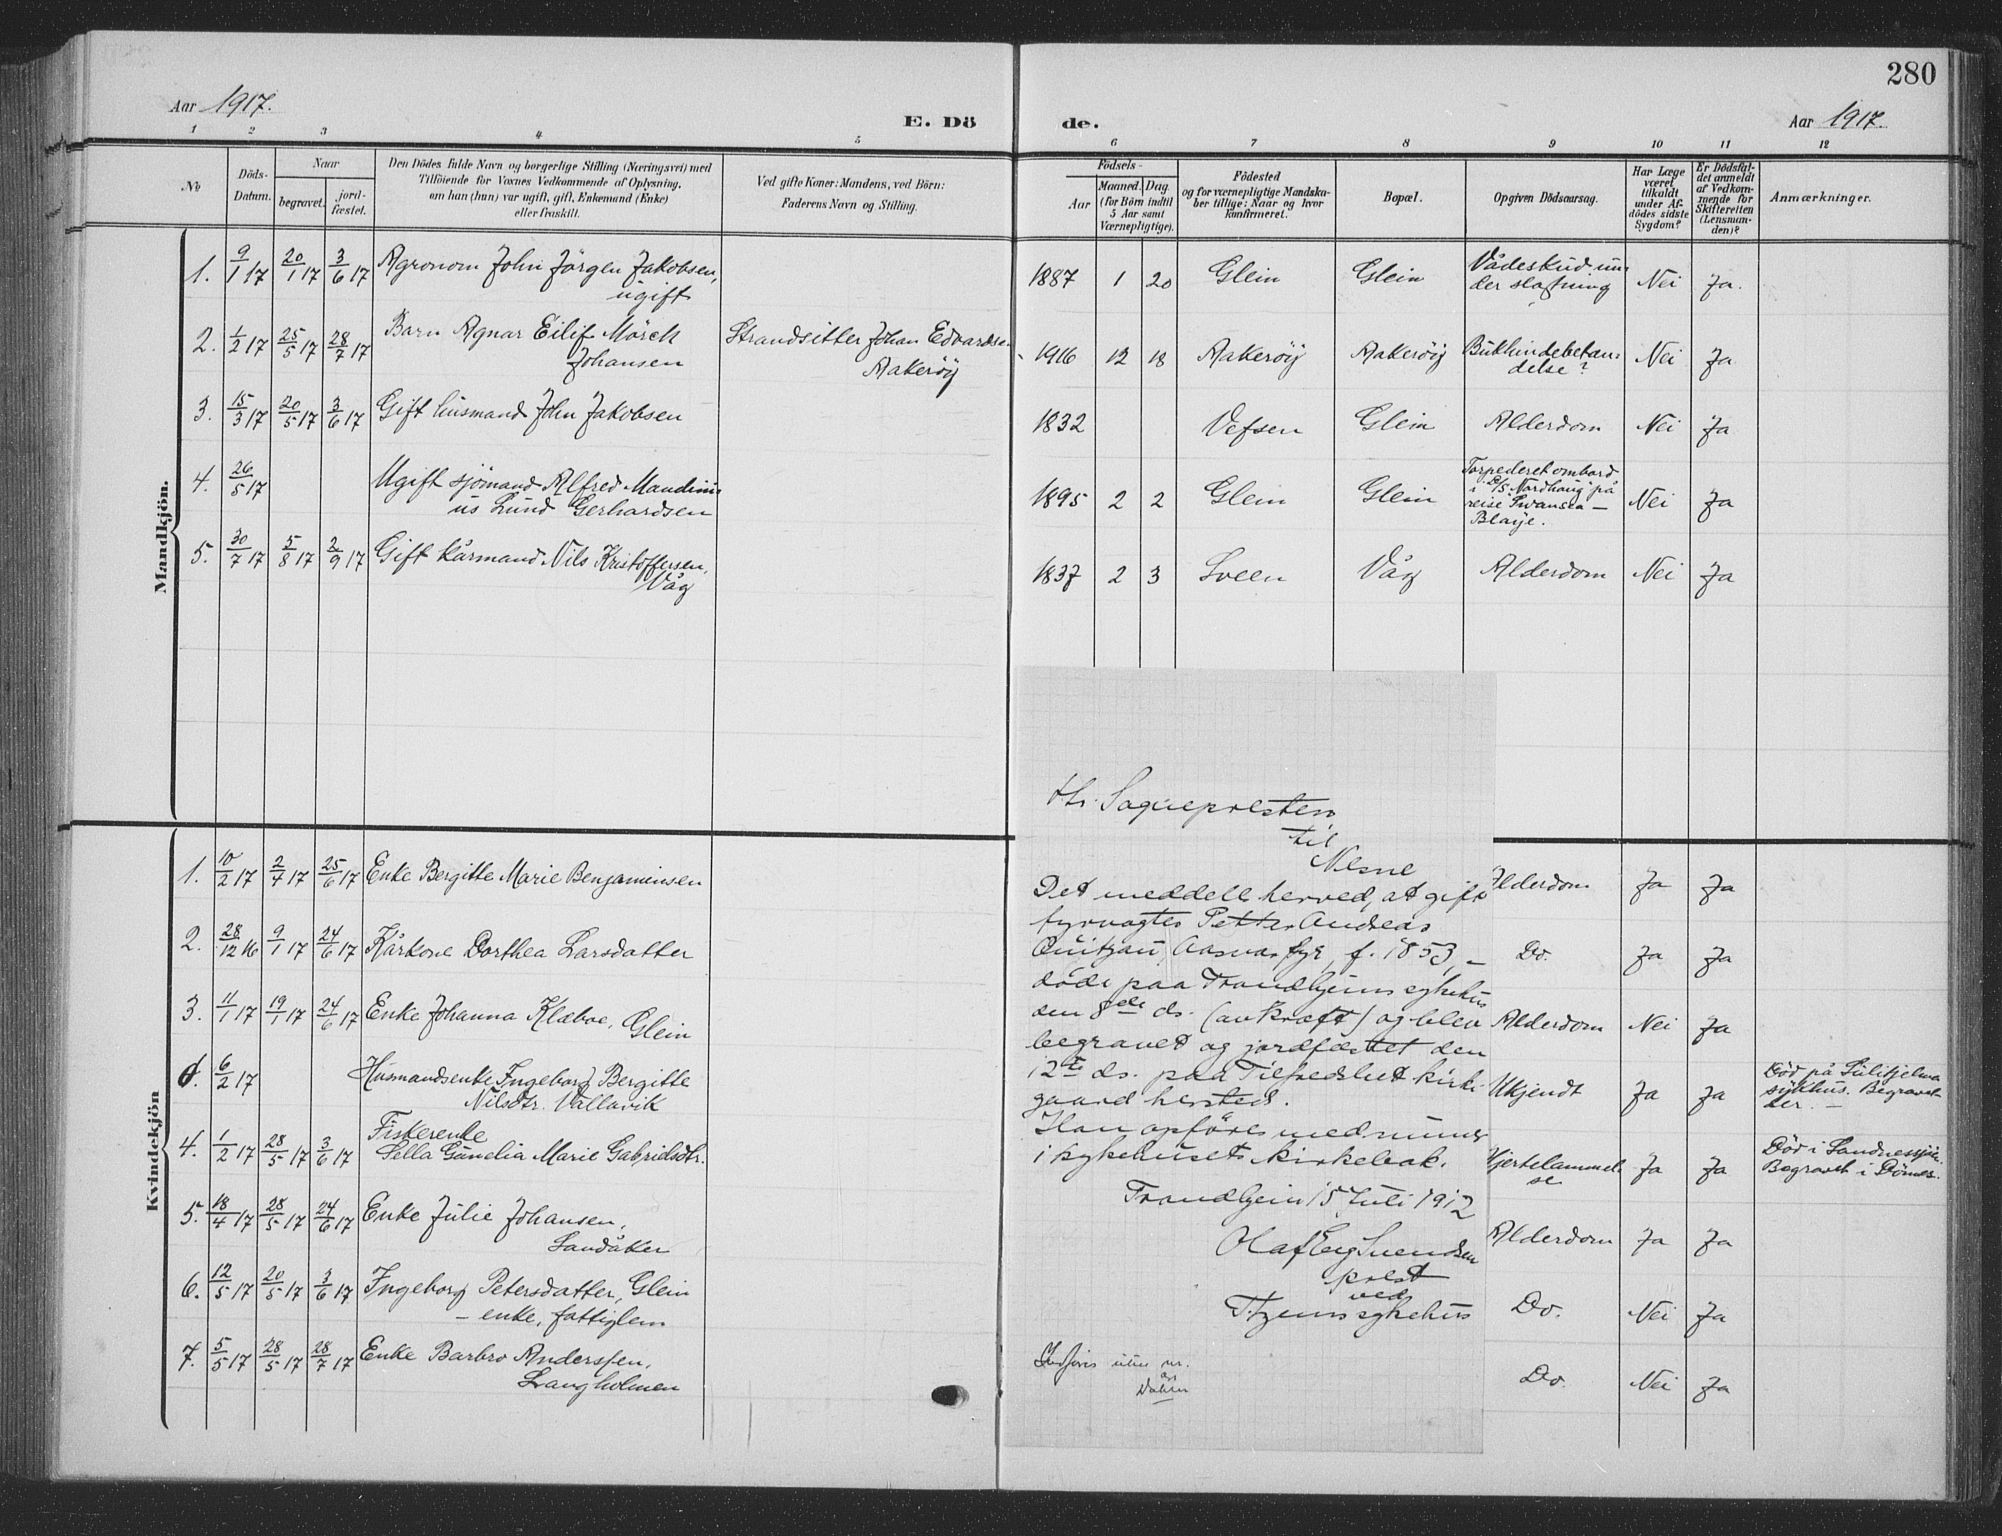 280
Aar 1917.
E. Dö
de.
Aar 1917.
1 2 3 4 5
6 7 8 9 10 11 12
No
Döds-
Datum.
Naar
begravet.
jord-
fæstet.
Den Dödes fulde Navn og borgerlige Stilling (Næringsvei) med
Tilföiende for Voxnes Vedkommende af Oplysning,
om han (hun) var ugift, gift, Enkemand (Enke)
eller fraskilt.
Ved gifte Koner: Mandens, ved Börn:
Faderens Navn og Stilling.
Födsels-
Aar
Maaned. Dag.
(for Börn indtil
5 Aar samt
Værnepligtige).
Födested
og for værnepligtige Mandska-
ber tillige: Naar og hvor
konfirmeret.
Bopæl.
Opgiven Dödsaarsag.
Har Læge
været
tilkaldt
under Af-
dödes sidste
Sygdom?
Er Dödsfal-
det anmeldt
af Vedkom-
mende for
Skifteretten
(Lensman-
den)?
Anmærkninger.
Mandkjön.
1. 9/1 17 20/1 17 3/6 17 Agronom John Jörgen Jakobsen,
ugift
1887 1 20 Glein Glein Vådeskud un-
der slagtning Nei Ja.
2. 1/2 17 25/5 17 28/7 17 Barn Agnar Eilif Mörch
Johansen
Strandsitter Johan Edvardse-
Aakeröy
1916 12 18 Aakeröy Aakeröy Bukhindebetæn-
delse? Nei Ja
3. 15/3 17 20/5 17 3/6 17 Gift husmand John Jakobsen
1832 Vefsen Glein Alderdom Nei Ja
4. 26/5 17 Ugift sjömand Alfred Mandini-
us Lund Gerhardsen
1895 2 2 Glein Glein Torpederet ombord
i D/S. Nordhaug på
reise Swansea —
Blaye. Nei Ja
5. 30/7 17 5/8 17 2/9 17 Gift kårmand Nils Kristoffersen,
Våg
1837 2 3 Sveen Våg Alderdom Nei Ja
Kvindekjön
1. 10/2 17 2/4 17 25/6 17 Enke Bergitte Marie Benjaminsen
Alderdom Ja Ja
2. 28/12 16 9/1 17 24/6 17 Kårkone Dorthea Larsdatter
Do. Ja Ja
3. 11/1 17 19/1 17 24/6 17 Enke Johanna Klæboe, Glein
Alderdom Nei Ja
d. 6/2 17 Husmandsenke Ingeborg Bergitte
Nilsdtr. Vallavik
Ukjendt Ja Ja Död på Sulitjelma
sykhus. Begravet
der. —
4. 1/2 17 28/5 17 3/6 17 Fiskerenke
Sella Gunelia Marie Gabrielsdtr.
Hjertelammel-
se Ja Ja Död i Sandnessjöen
Begravet i Dönnes.
5. 18/4 17 28/5 17 24/6 17 Enke Julie Johansen,
Sandåker
Alderdom Ja Ja
6. 12/5 17 20/5 17 3/6 17 Ingeborg Petersdatter, Glein
— enke, fattiglem
Do. Nei Ja
7. 5/5 17 28/5 17 28/7 17 Enke Barbro Anderssen,
Langholmen
Do. Nei Ja
Hr. Sognepresten
til
Nesne
Det meddeles herved, at gift
fyrvogter Petter Andreas
Quitzau, Aasvær fyr, f. 1853, —
döde paa Trondhjems sykehus
den 8de ds. (av kræft) og blev
begravet og jordfæstet den
12te ds. paa Tilfredshet kirke-
gaard hersteds.
Han opföres med numer
i sykehusets kirkebok.
Trondhjem 15 Juli 1912
Olaf Svendsen
prest
ved
T.hjems sykehus
Indföres uten nr.